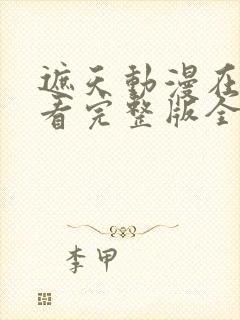 遮天動漫在
看完整版全
李甲